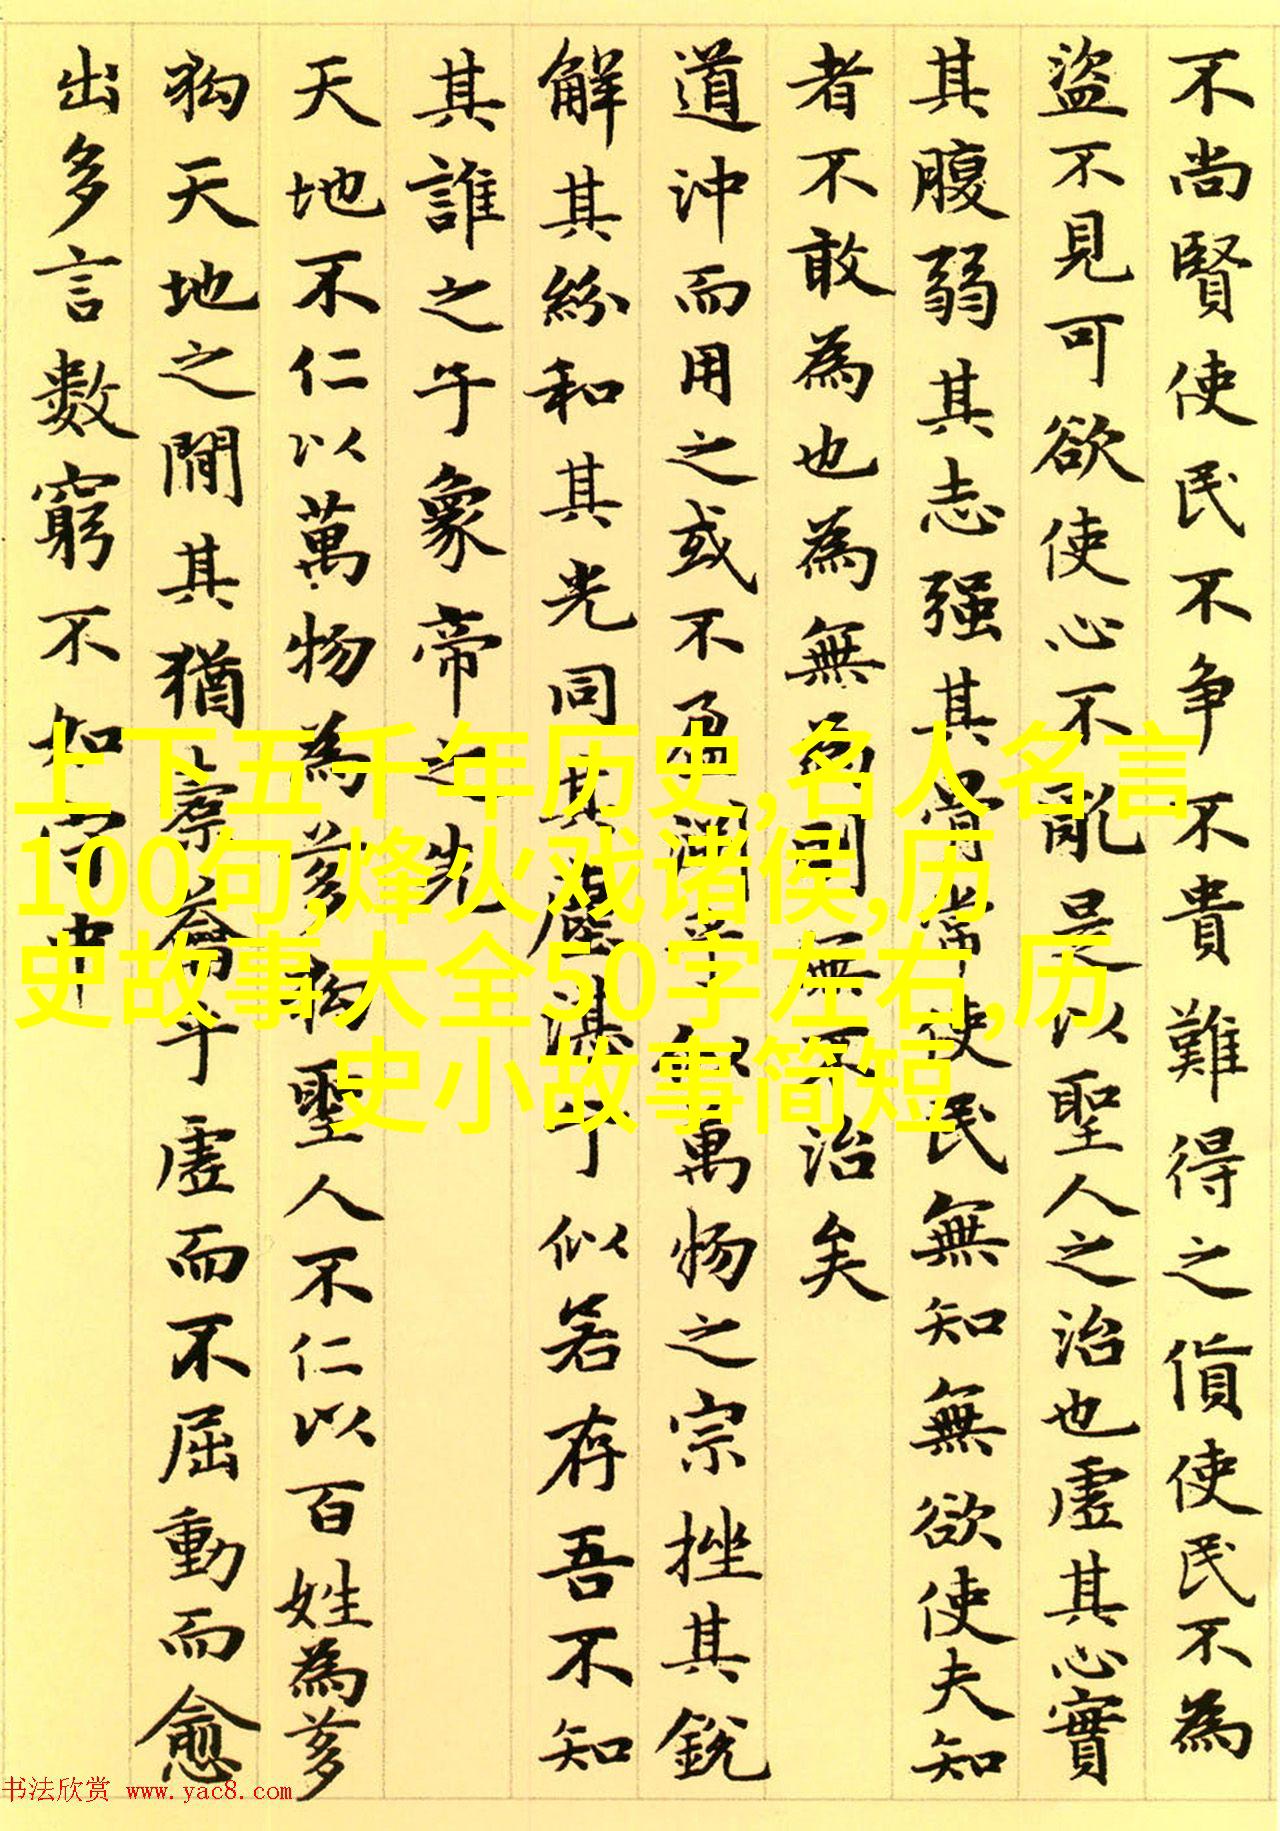 不尚賢使民不争不貴難得之貨使民不為
盜不見可欲使心不亂是以聖人之治也虛其心實
其腹弱其志强其骨常使民無知無欲使夫知
者不敢為也為無為則無不治矣
道沖而用之或不盈淵乎似萬物之宗挫其銳
解其紛和其光同其塵湛乎似若存吾不知
其誰之子象帝之先
天地不仁以萬物為芻狗聖人不仁以百姓為芻
狗天地之間其猶橐籥乎虛而不屈動而愈
出多言數窮不如守中
上下五千年历史,名人名言
100句,烽火戏诸侯,历
史故事大全50字左右,历
史小故事简短
书法欣赏 www.yac8.com